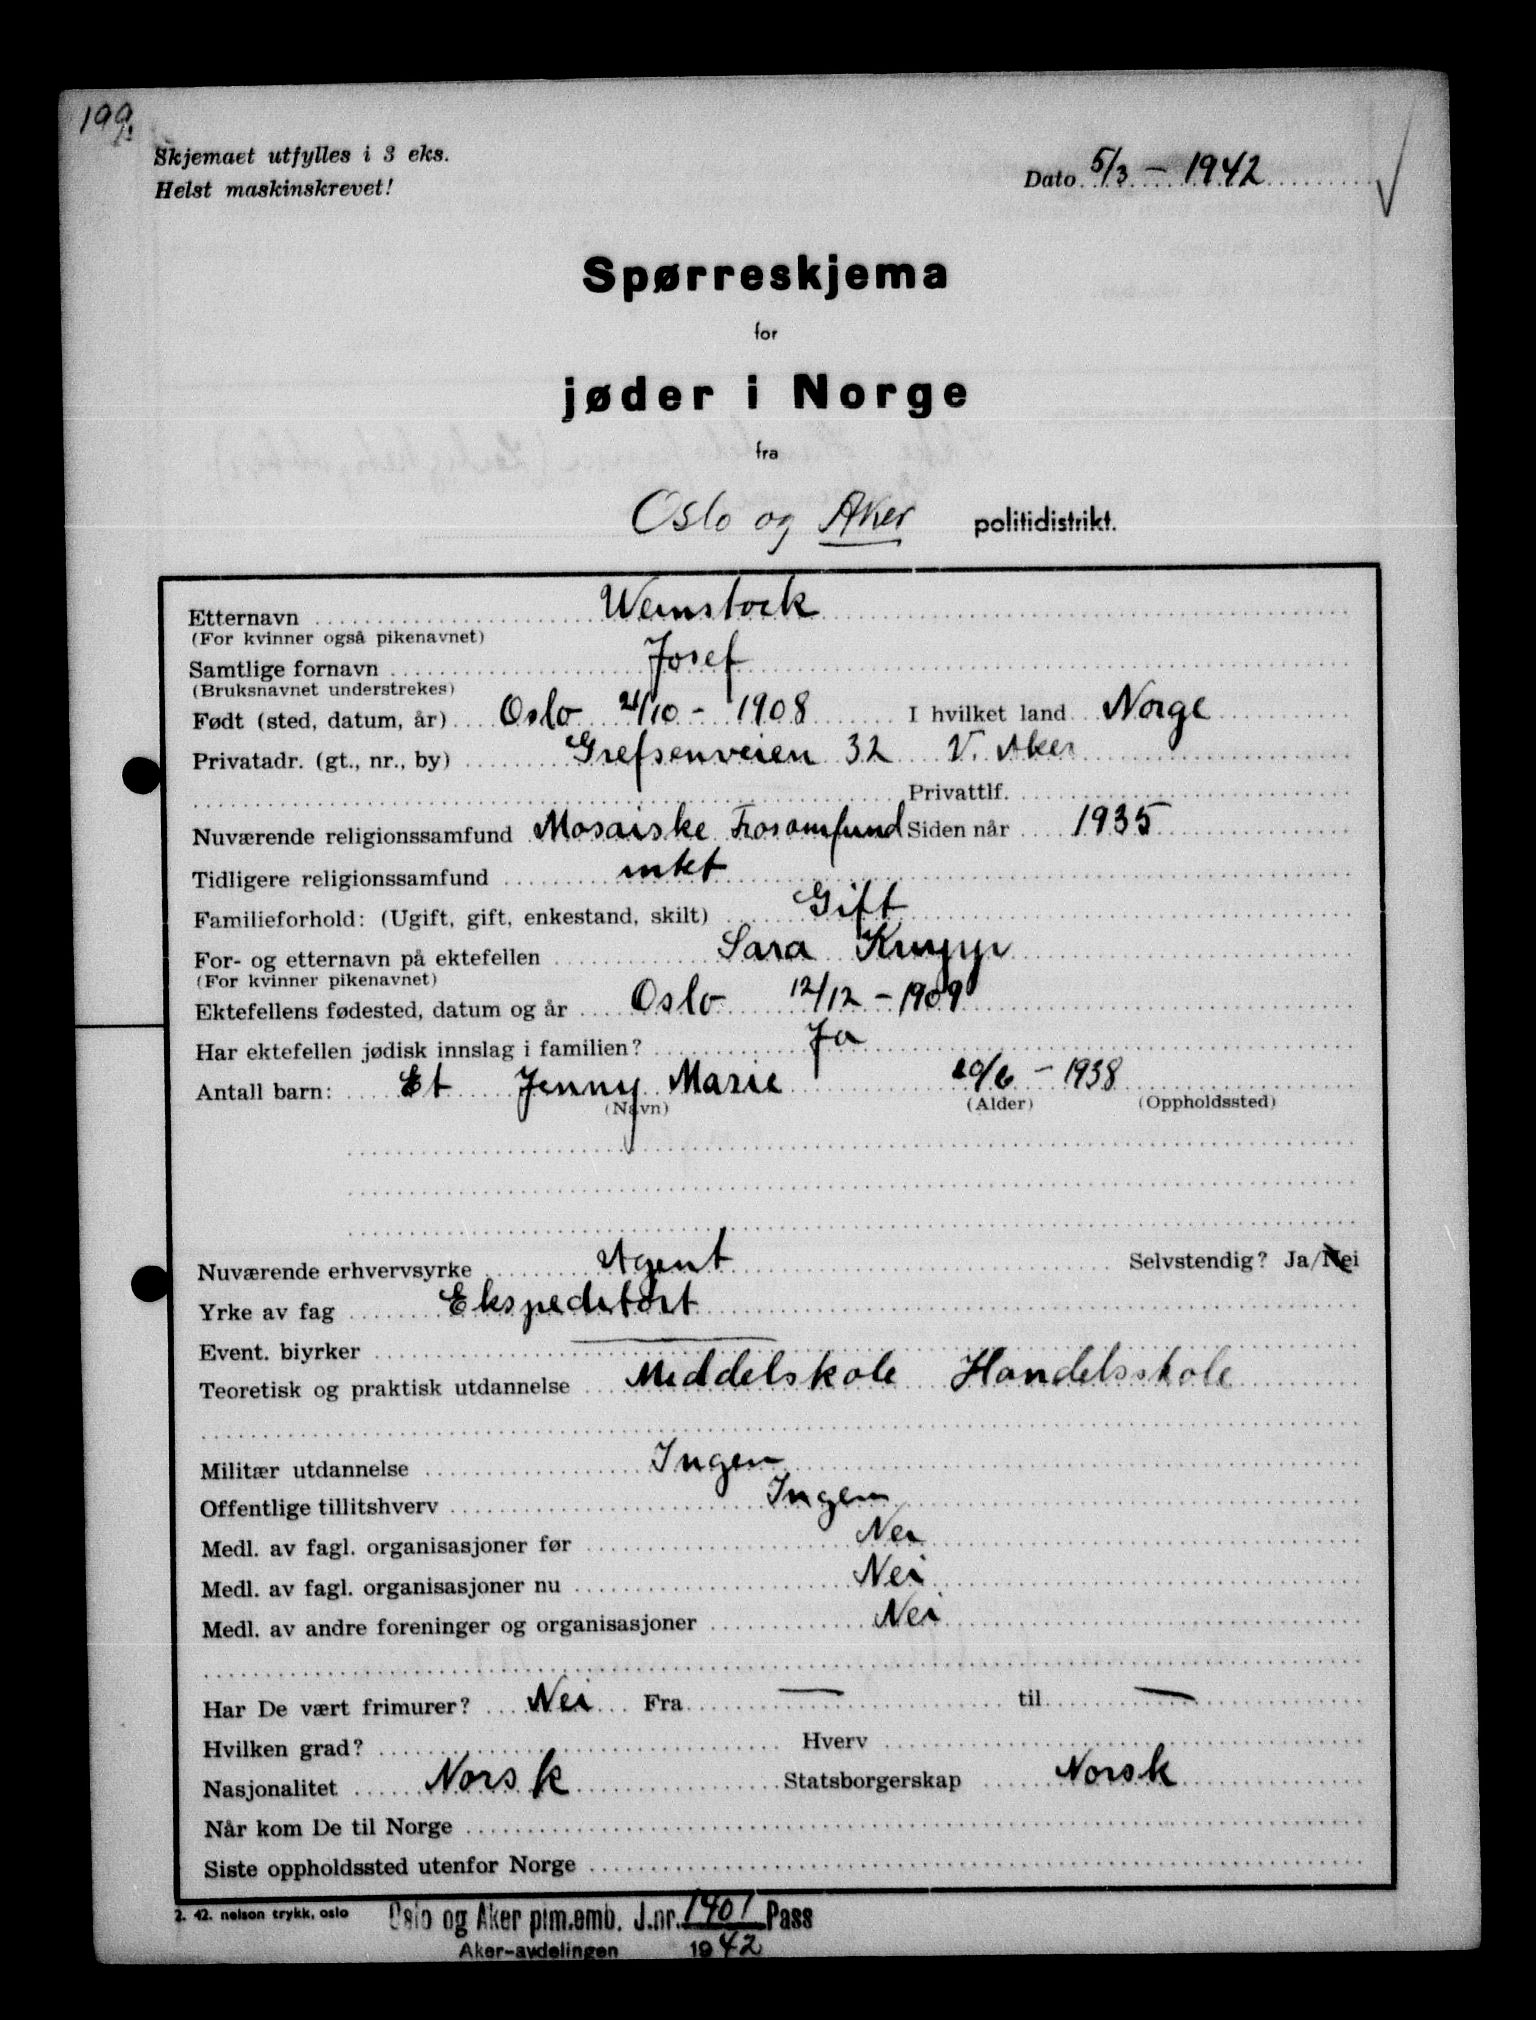 199.
Skjemaet utfylles i 3 eks.
Helst maskinskrevet!
Dato 5/3 - 1942
Spørreskjema
for
jøder i Norge
fra
Oslo og Aker politidistrikt.
Etternavn Weinstock
(For kvinner også pikenavnet)
Samtlige fornavn Josef
(Bruksnavnet understrekes)
Født (sted, datum, år) Oslo 21/10 - 1908 I hvilket land Norge
Privatadr. (gt., nr., by) Grefsenveien 32 V. Aker
Privattlf.
Nuværende religionssamfund Mosaiske Trosamfund Siden når 1935
Tidligere religionssamfund intet
Familieforhold: (Ugift, gift, enkestand, skilt) Gift
For- og etternavn på ektefellen Sara Krupp
(For kvinner pikenavnet)
Ektefellens fødested, datum og år Oslo 12/12 - 1909
Har ektefellen jødisk innslag i familien? Ja
Antall barn: Et Jenny Marie 20/6 - 1938
(Navn) (Alder) (Oppholdssted)
Nuværende erhvervsyrke Agent Selvstendig? Ja/Nei
Yrke av fag Ekspeditört
Event. biyrker —
Teoretisk og praktisk utdannelse Middelskole Handelsskole
Militær utdannelse Ingen
Offentlige tillitshverv Ingen
Medl. av fagl. organisasjoner før Nei
Medl. av fagl. organisasjoner nu Nei
Medl. av andre foreninger og organisasjoner Nei
Har De vært frimurer? Nei Fra — til —
Hvilken grad? Hverv
Nasjonalitet Norsk Statsborgerskap Norsk
Når kom De til Norge
Siste oppholdssted utenfor Norge
2. 42. nelson trykk, oslo
Oslo og Aker plm.emb. J.nr. 1401 Pass
Aker-avdelingen 1942